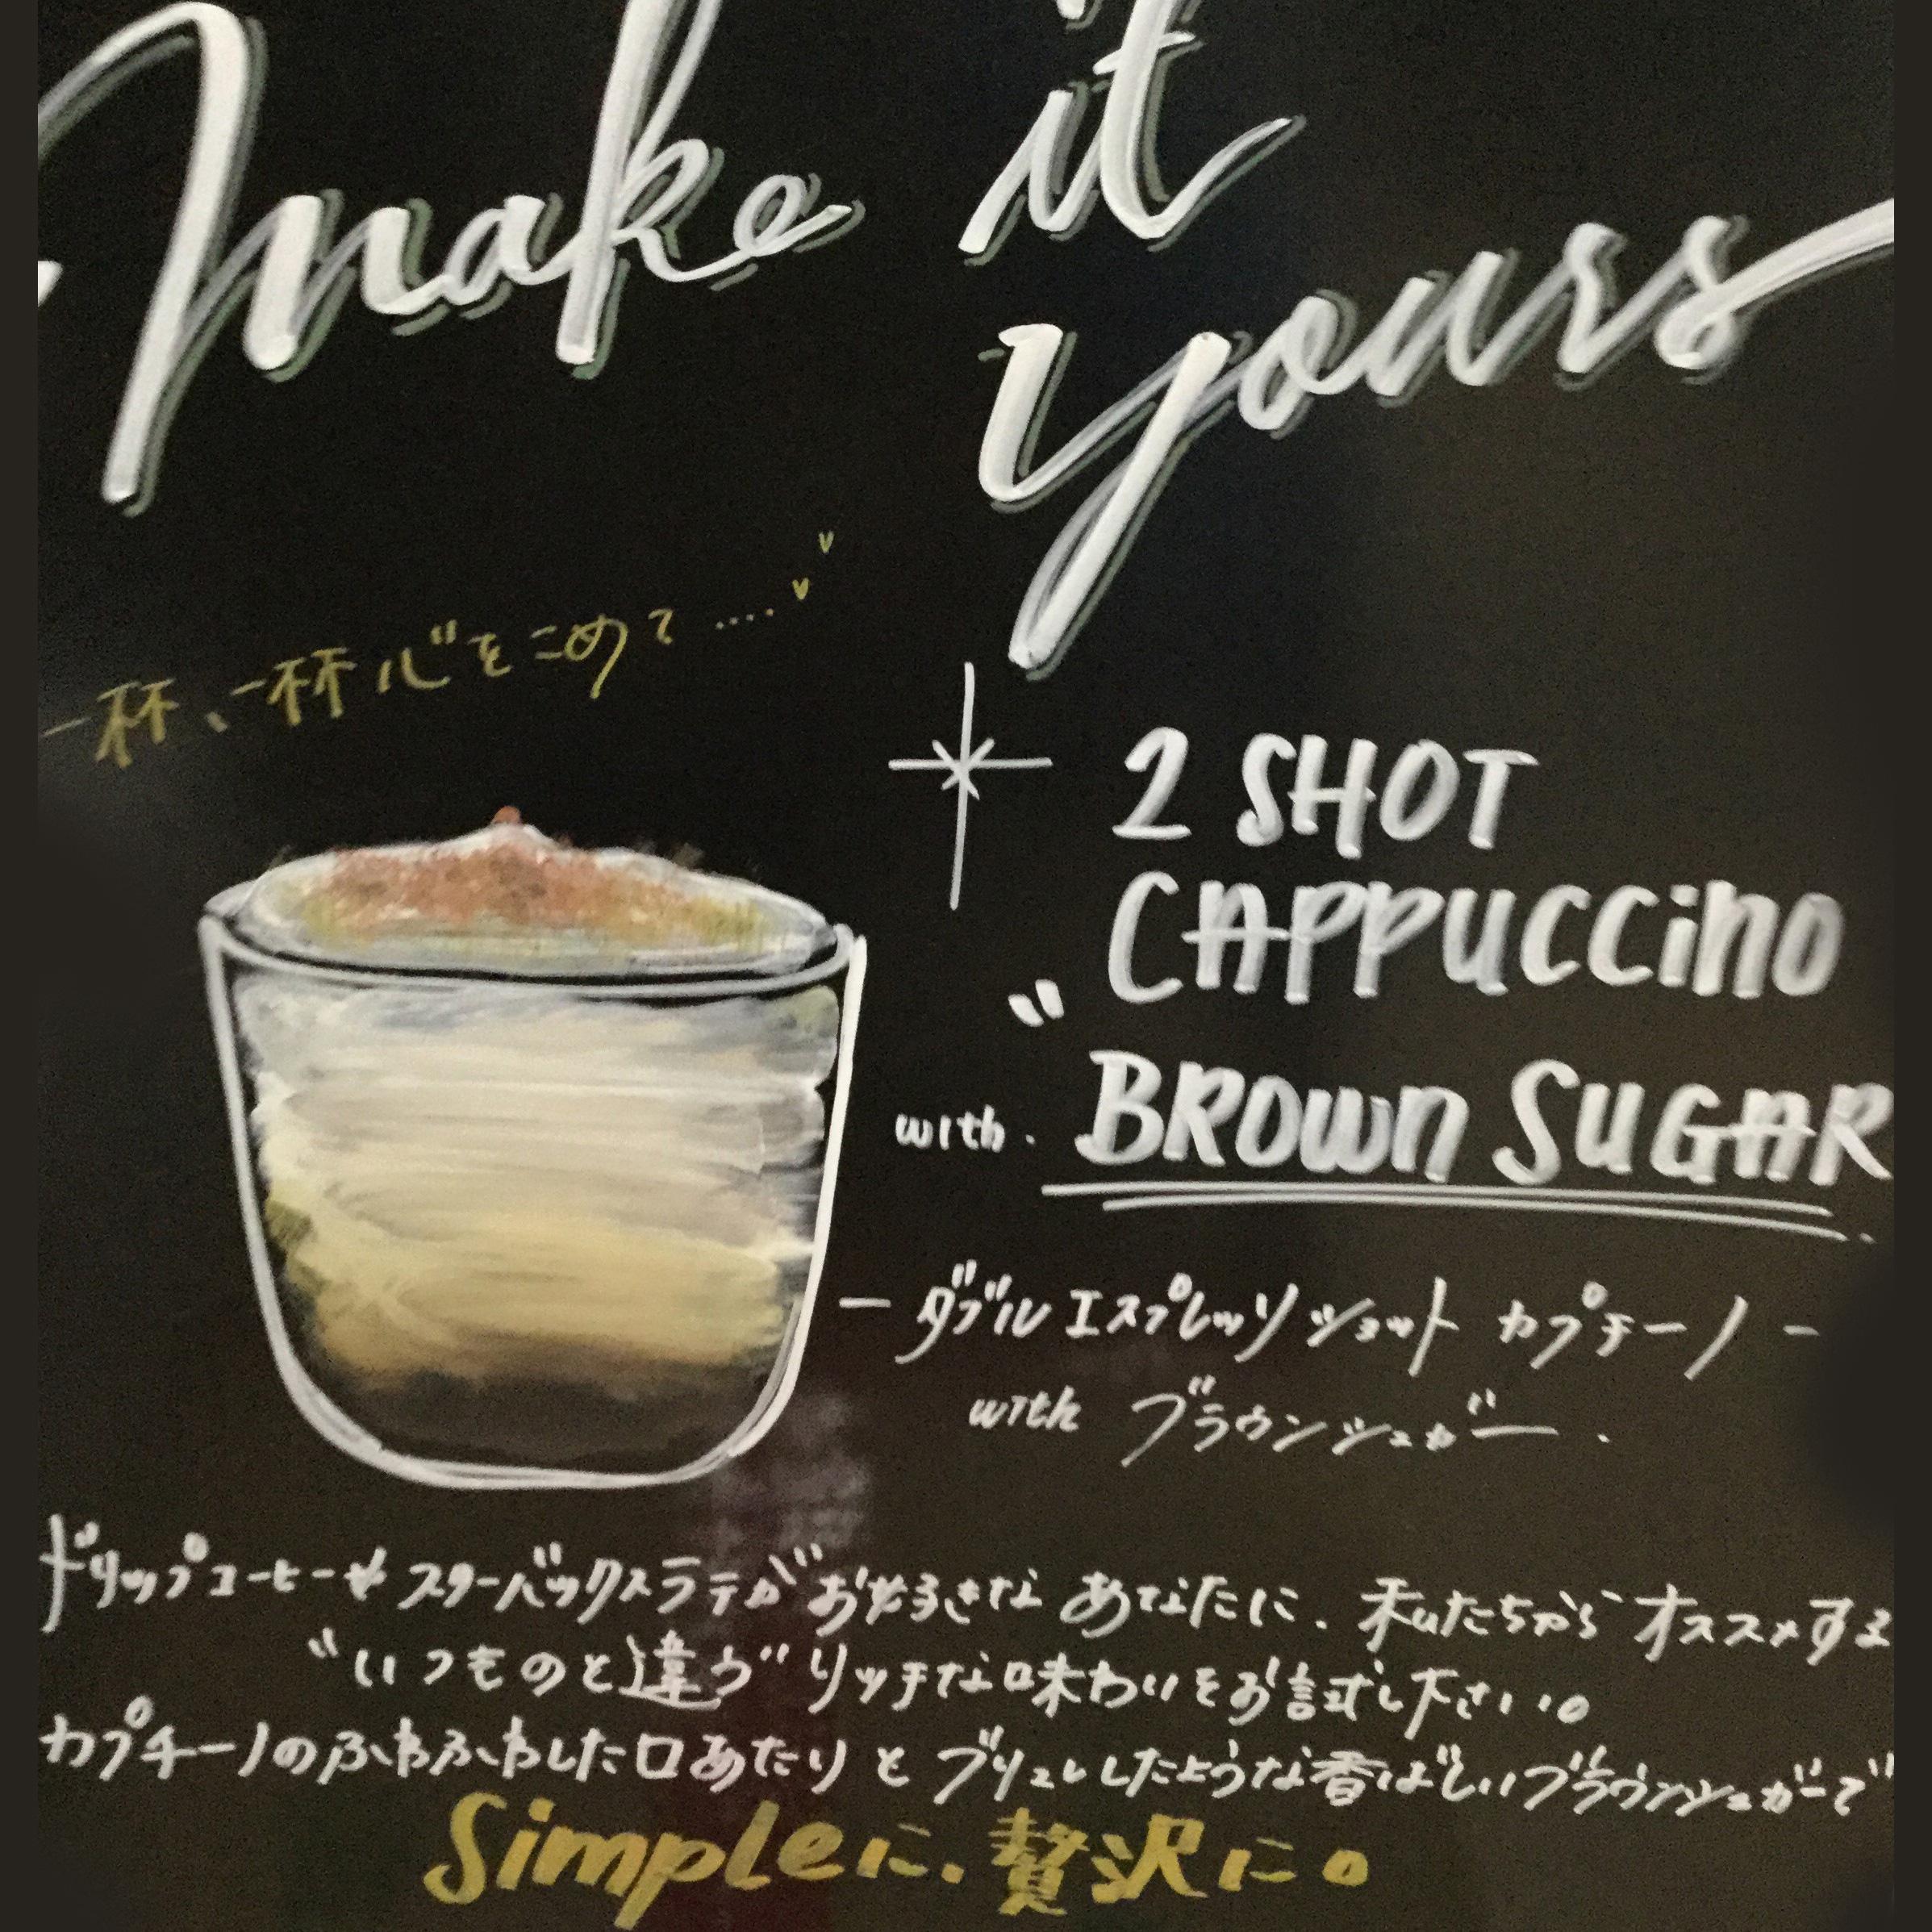 make it
yours
一杯、一杯心をこめて....
2 SHOT
CAPPUCCino
with. BROWN SUGAR
ー ダブル エスプレッソ ショット カプチーノ ー
with ブラウンシュガー.
ドリップコーヒーや スターバックスラテが お好きな あなたに、私たちから オススメする
"いつものと違う" リッチな味わいをお試し下さい。
カプチーノのふわふわした口あたり と ブリュレしたような香ばしいブラウンシュガーで
Simpleに、贅沢に。